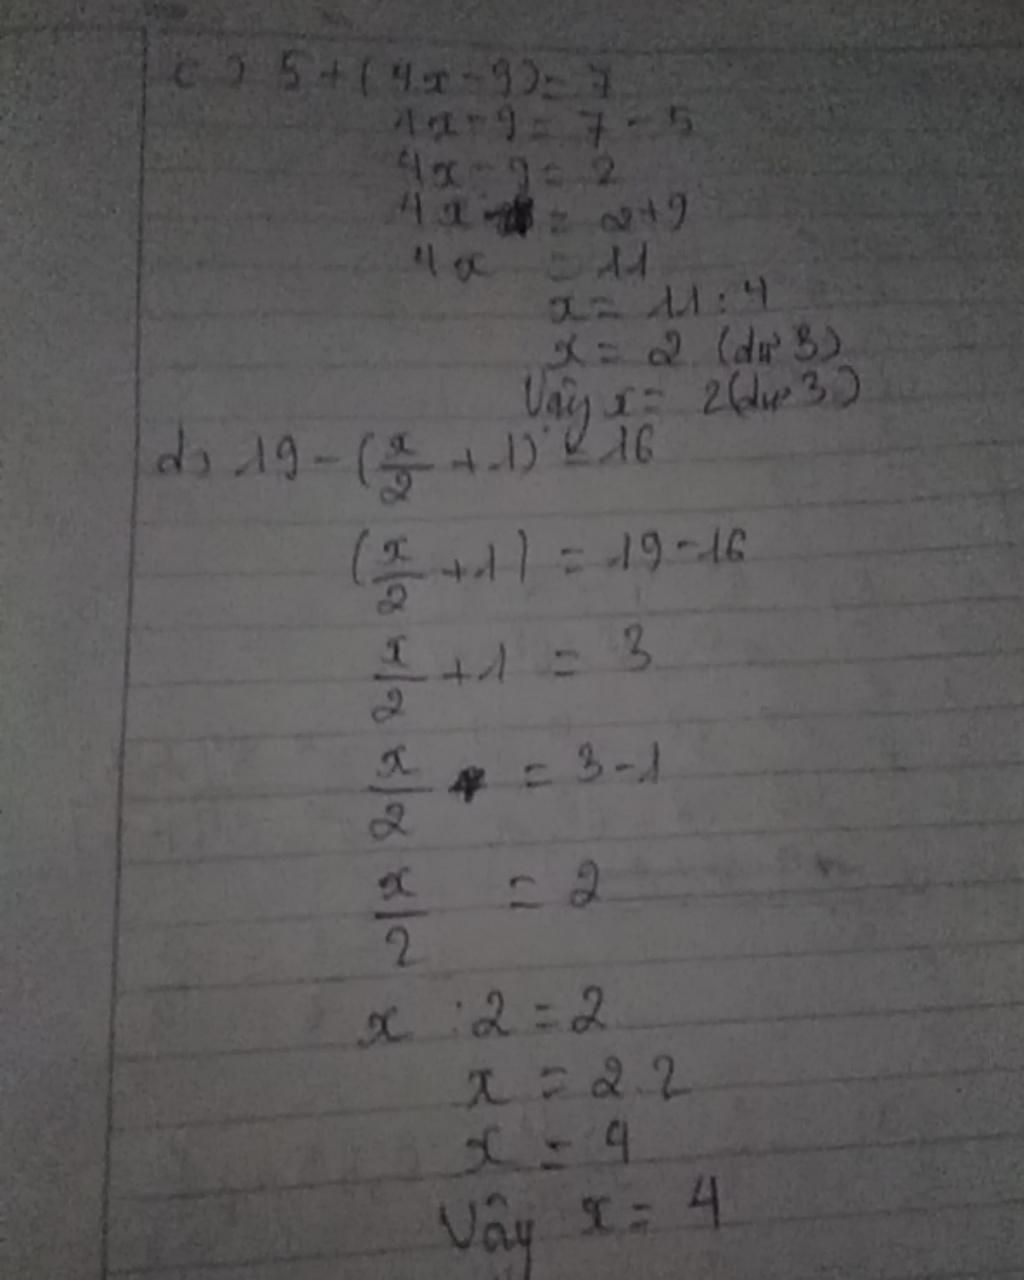 c) 5 + (4x - 9) = 7
4x - 9 = 7 - 5
4x - 9 = 2
4x = 2 + 9
4x = 11
x = 11 : 4
x = 2 (dư 3)
Vậy x = 2 (dư 3)
d) 19 - (x/2 + 1) = 16
(x/2 + 1) = 19 - 16
x/2 + 1 = 3
x/2 = 3 - 1
x/2 = 2
x : 2 = 2
x = 2.2
x = 4
Vậy x = 4